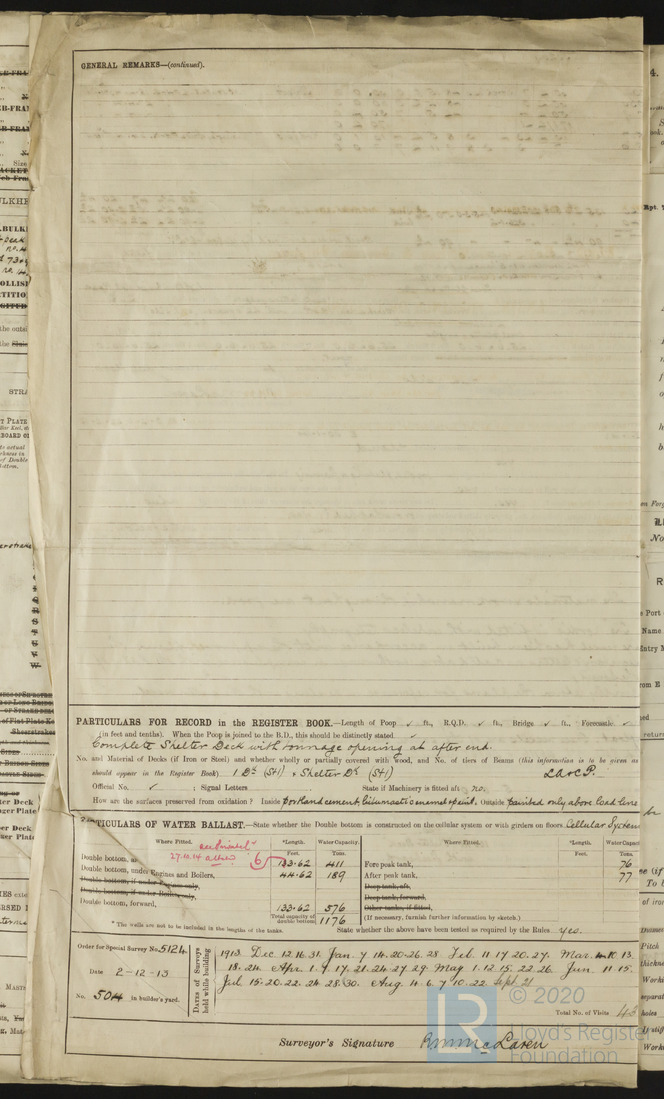 GENERAL REMARKS—(continued).
PARTICULARS FOR RECORD in the REGISTER BOOK.—Length of Poop ✓ ft., R.Q.D. ✓ ft., Bridge ✓ ft., Forecastle ✓
(in feet and tenths). When the Poop is joined to the B.D., this should be distinctly stated ✓
Complete Shelter Deck with tonnage opening at after end.
No. and Material of Decks (if Iron or Steel) and whether wholly or partially covered with wood, and No. of tiers of Beams (this information is to be given as
should appear in the Register Book). 1 Dk (Stl) & Shelter Dk (Stl)
Official No. ✓ ; Signal Letters State if Machinery is fitted aft no.
How are the surfaces preserved from oxidation? Inside portland cement, bitumastic enamel & paint. Outside painted only above load line
PARTICULARS OF WATER BALLAST.—State whether the Double bottom is constructed on the cellular system or with girders on floors Cellular System
Where Fitted. *Length. Water Capacity. Where Fitted. *Length. Water Capac
Feet. Tons. Feet. Tons.
27.10.14
Double bottom, 133.62 411 Fore peak tank, 76
Double bottom, under Engines and Boilers, 44.62 189 After peak tank, 77
Double bottom, if under Engines only, Deep tank, aft,
Double bottom, if under Boilers only, Deep tank, forward,
Double bottom, forward, 133.62 576 Other tanks, if fitted,
Total capacity of double bottom 1176 (If necessary, furnish further information by sketch.)
* The wells are not to be included in the lengths of the tanks. State whether the above have been tested as required by the Rules yes.
Order for Special Survey No. 5124
Date 2-12-13
No. 504 in builder's yard.
Dates of Surveys held while building
1913 Dec. 12.16.31. Jan. 7.14.20.26.28 Feb. 11.17.20.27. Mar. 4.10.13.
18.24. Apr. 1.7.17.21.24.27.29. May 1.12.15.22.26. Jun. 11.15.
Jul 15.20.22.24.28.30. Aug. 4.6.7.10.22. Sept. 21
Total No. of Visits
Surveyor's Signature R. M. McLaren
© 2020
LR
Lloyd's Register
Foundation